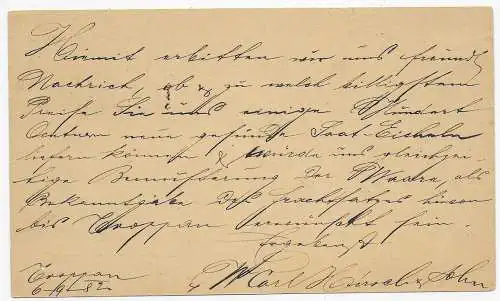 Hiemit erbitten wir uns freundl
Nachricht, ob & zu welch billigstem
Preise Sie uns einige Hundert
Centner neue gesunde Saat-Eicheln
liefern können & würde uns gleichzei-
tige Bemusterung der Waare, als
Bekanntgabe des Frachtsatzes hievon
bis Troppau erwünscht sein.
Ergebenst
Troppau Carl & Sohn
6/9 82